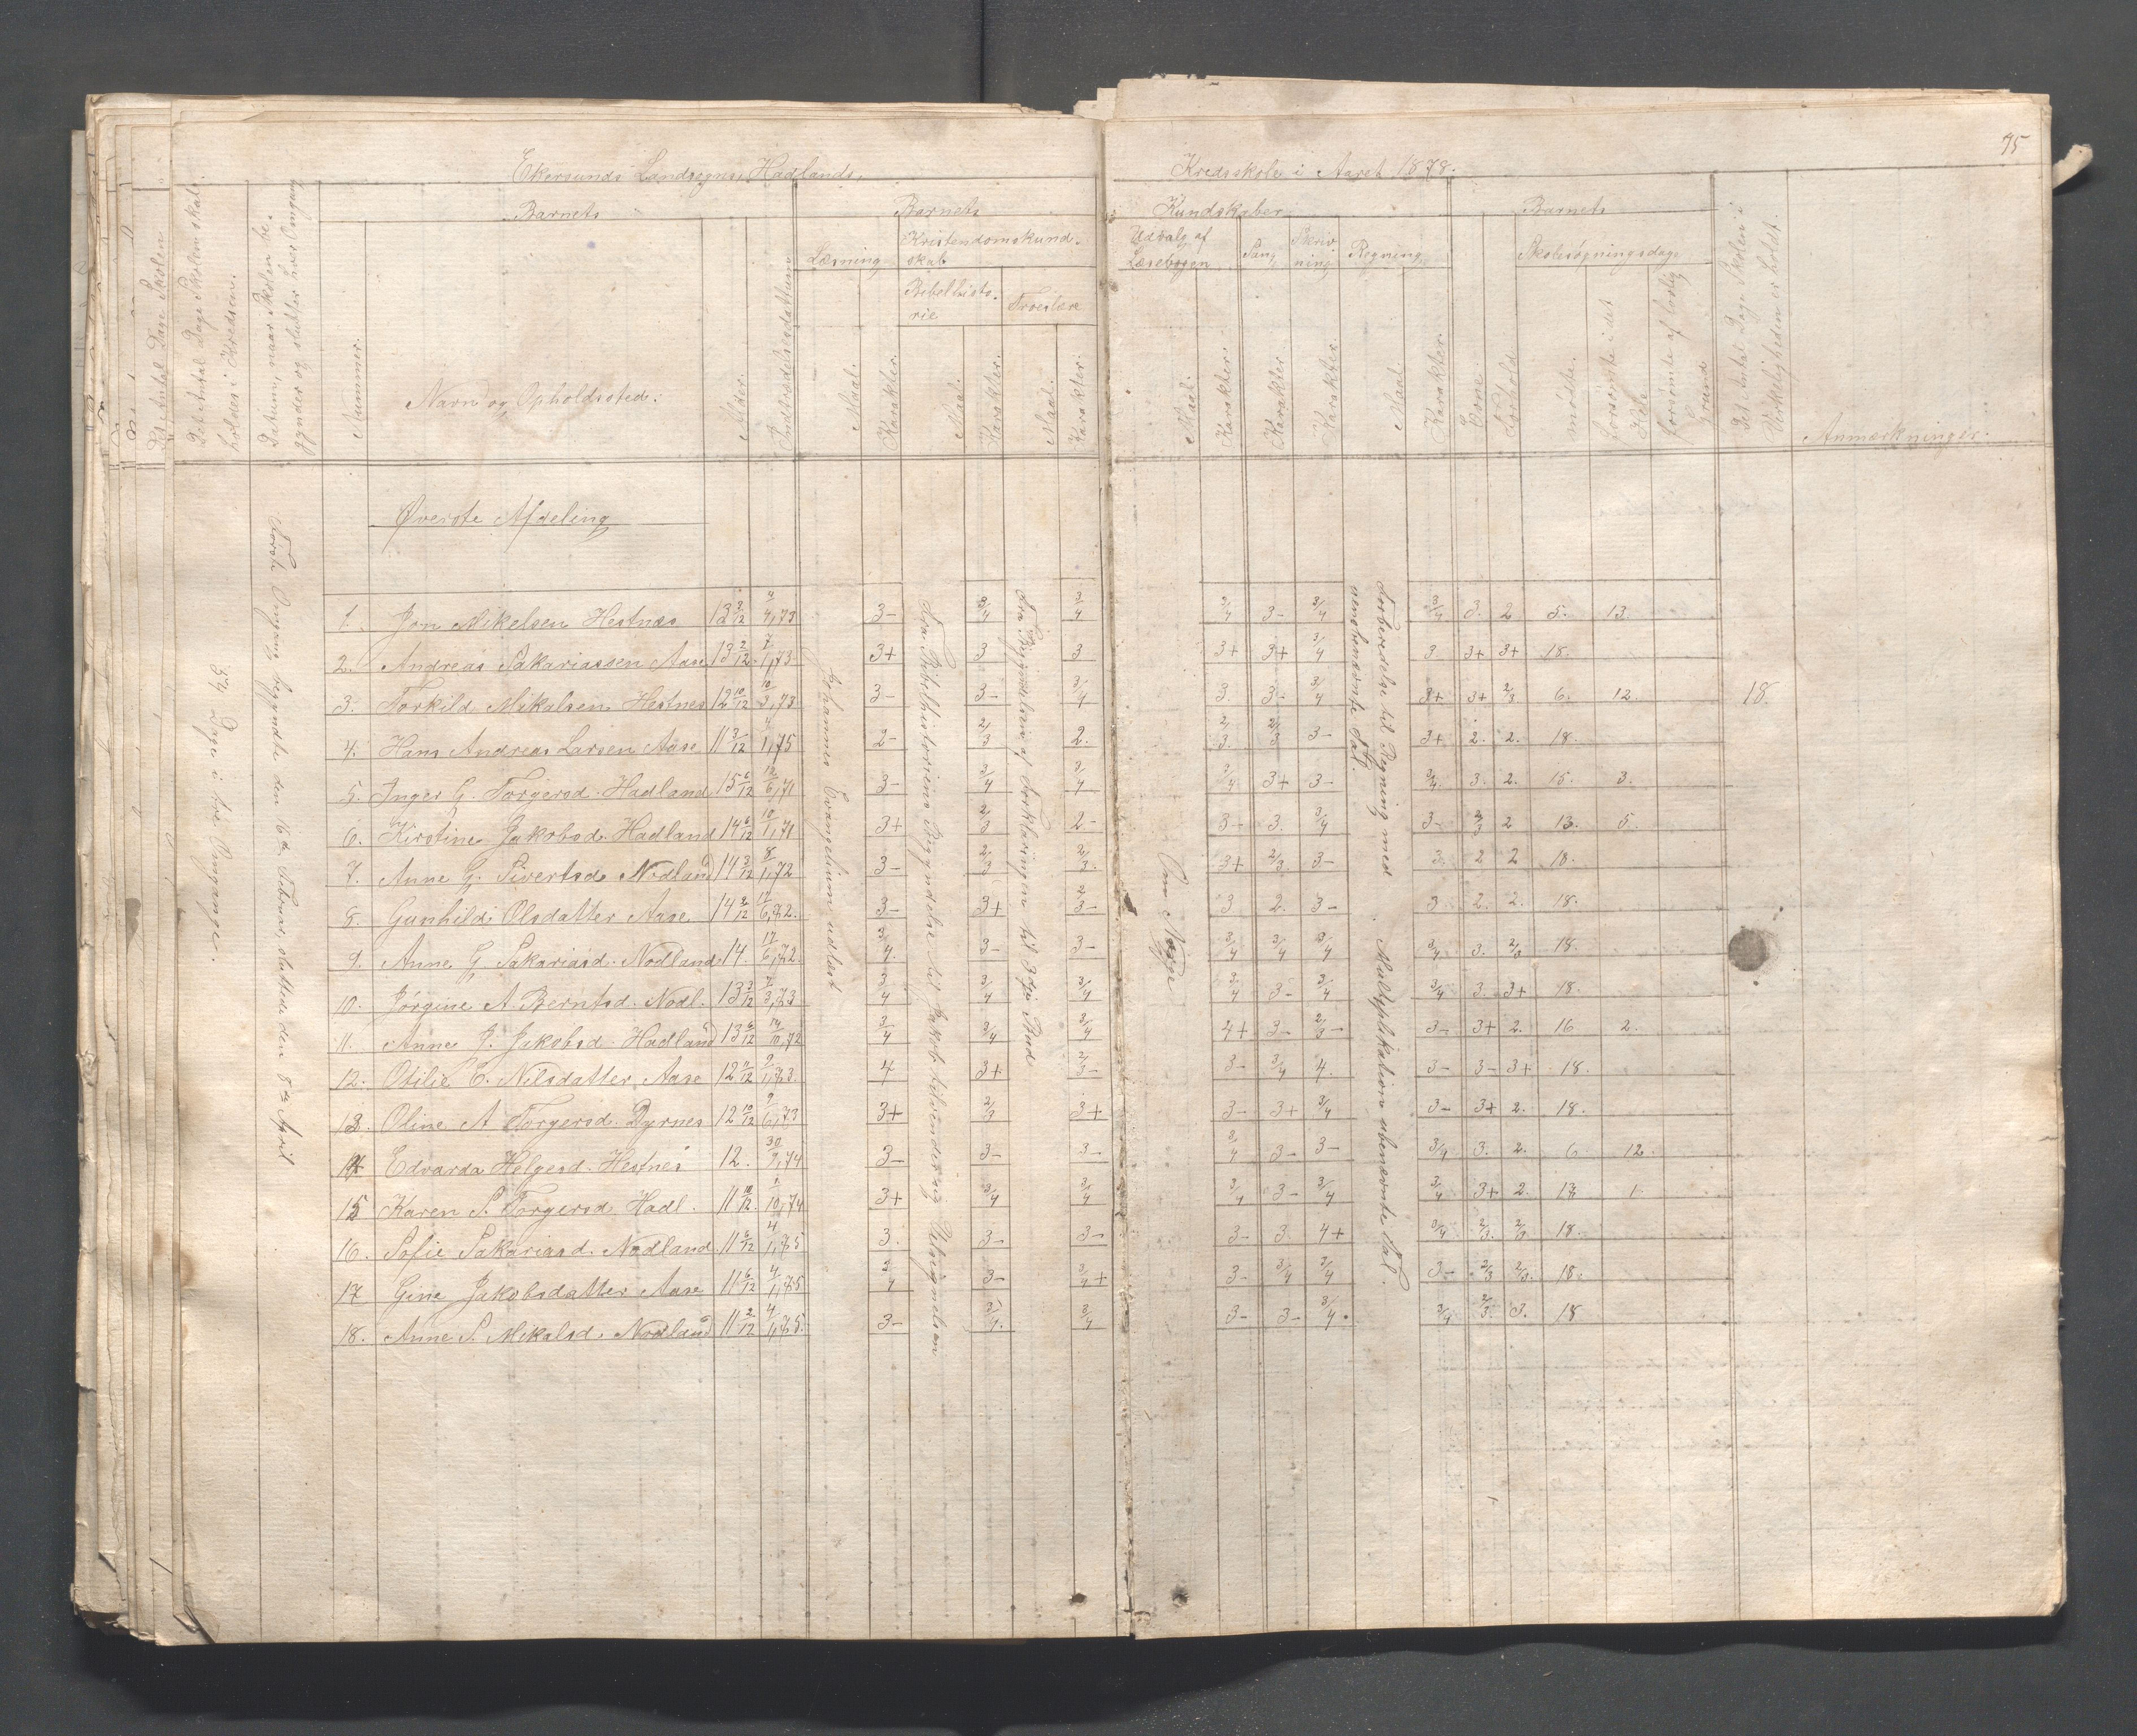 75
Ekersunds Landsogns, Hadlands, Kredsskole i Aaret 1878.
Det Antal Dage Skolen skal holdes i Kredsen.
Datum, naar Skolen begynder og slutter hver Omgang
Nummer.
Barnets
Navn og Opholdssted.
Alder.
Indtrædelsesdatum
Barnets Kundskaber
Læsning
Maal.
Karakter.
Kristendomskundskab
Bibelhistorie
Maal.
Karakter.
Troeslære
Maal.
Karakter.
Udvalg af Læsebogen
Maal.
Karakter.
Sang
Karakter.
Skrivning
Karakter.
Regning
Maal.
Karakter.
Barnets
Evne.
Forhold
Skolesøgningsdage
mødte.
forsømte i det Hele
forsømte af lovlig Grund
Det Antal Dage Skolen i Virkeligheden er holdt.
Anmærkninger.
Øverste Afdeling
54 Dage i tre Omgange.
Første Omgang begyndte den 16de Februar, sluttede den 8de April
Johannes Evangelium udlæst
Fra Bibelhistoriens Begyndelse til Jakob tilvendersig Velsignelsen
Fra Begyndelsen af Forklaringen til 3die Bud
Om Norge
Forberedelse til Regning med ubenævnte Tal.
Multiplikation ubenævnte Tal.
1. Jon Mikelsen Hestnes 13 3/12 4,73 3- 3/4 3/4 3/4 3- 3/4 3/4 3. 2 5. 13.
2. Andreas Sakariassen Aase 13 2/12 7/1,73 3+ 3 3 3+ 3+ 3/4 3 3+ 3+ 18.
3. Torkild Mikalsen Hestnes 12 10/12 10/3,73 3- 3- 3/4 3. 3- 3/4 3+ 3+ 2/3 6. 12. 18.
4. Hans Andreas Larsen Aase 11 3/12 4/1,75 2- 2/3 2. 2/3. 2/3 3- 3+ 2. 2. 18.
5. Inger G. Torgersd. Hadland 15 6/12 12/6,71 3- 3/4 3/4 3/4 3+ 3- 3/4 3. 2. 15. 3.
6. Kirstine Jakobsd. Hadland 14 6/12 10/1,71 3+ 2/3 2- 3- 3. 3/4 3- 2/3 2 13. 5.
7. Anne G. Sivertsd Nodland 14 3/12 8/1,72 3- 2/3 2/3. 3+ 2/3 3- 3. 2 2 18.
8. Gunhild Olsdatter Aase 14 2/12 17/6,72. 3- 3+ 2/3- 3 2. 3- 3 2. 2. 18.
9. Anne G. Sakariasd. Nodland 14. 17/6,72. 3/4. 3- 3- 3/4 3/4 3/4 3/4 3. 2/3 18.
10. Jørgine A. Berntsd. Nodl. 13 3/12 2/3,73 3/4 3/4 3/4 3/4 3- 3/4 3/4 3. 3+ 18.
11. Anne J. Jakobsd. Hadland 13 6/12 14/10,72 3/4 3/4 3/4 4+ 3- 2/3- 3- 3+ 2. 16 2.
12. Otilie C. Nilsdatter Aase 12 11/12 9/1,73. 4 3+ 2/3- 3- 3/4 4. 3- 3- 3+ 18.
13. Oline A Torgersd. Dyrnes 12 10/12 9/6,73 3+ 2/3 3+ 3- 3+ 3/4 3- 3+ 2. 18.
14 Edvarda Helgesd. Hestnes 12. 30/9,74 3- 3- 3- 3/4 3- 3- 3/4 3. 2. 6. 12.
15 Karen S. Torgersd. Hadl. 11 10/12. 1/10,74 3+ 3/4 3/4 3/4 3- 3/4 3/4 3+ 2. 17. 1.
16. Sofie Sakariasd. Nodland 11 6/12 4/1,75 3. 3- 3- 3- 3. 4+ 3/4 2/3. 2/3 18.
17 Gine Jakobsdatter Aase 11 6/12 4/1,75 3/4 3- 3/4+ 3- 3/4 3/4 3- 2/3 2/3. 18.
18. Anne S. Mikalsd. Nodland 11 2/12 4/1,75. 3- 3/4. 3/4 3- 3- 3/4. 3/4 2/3. 3. 18